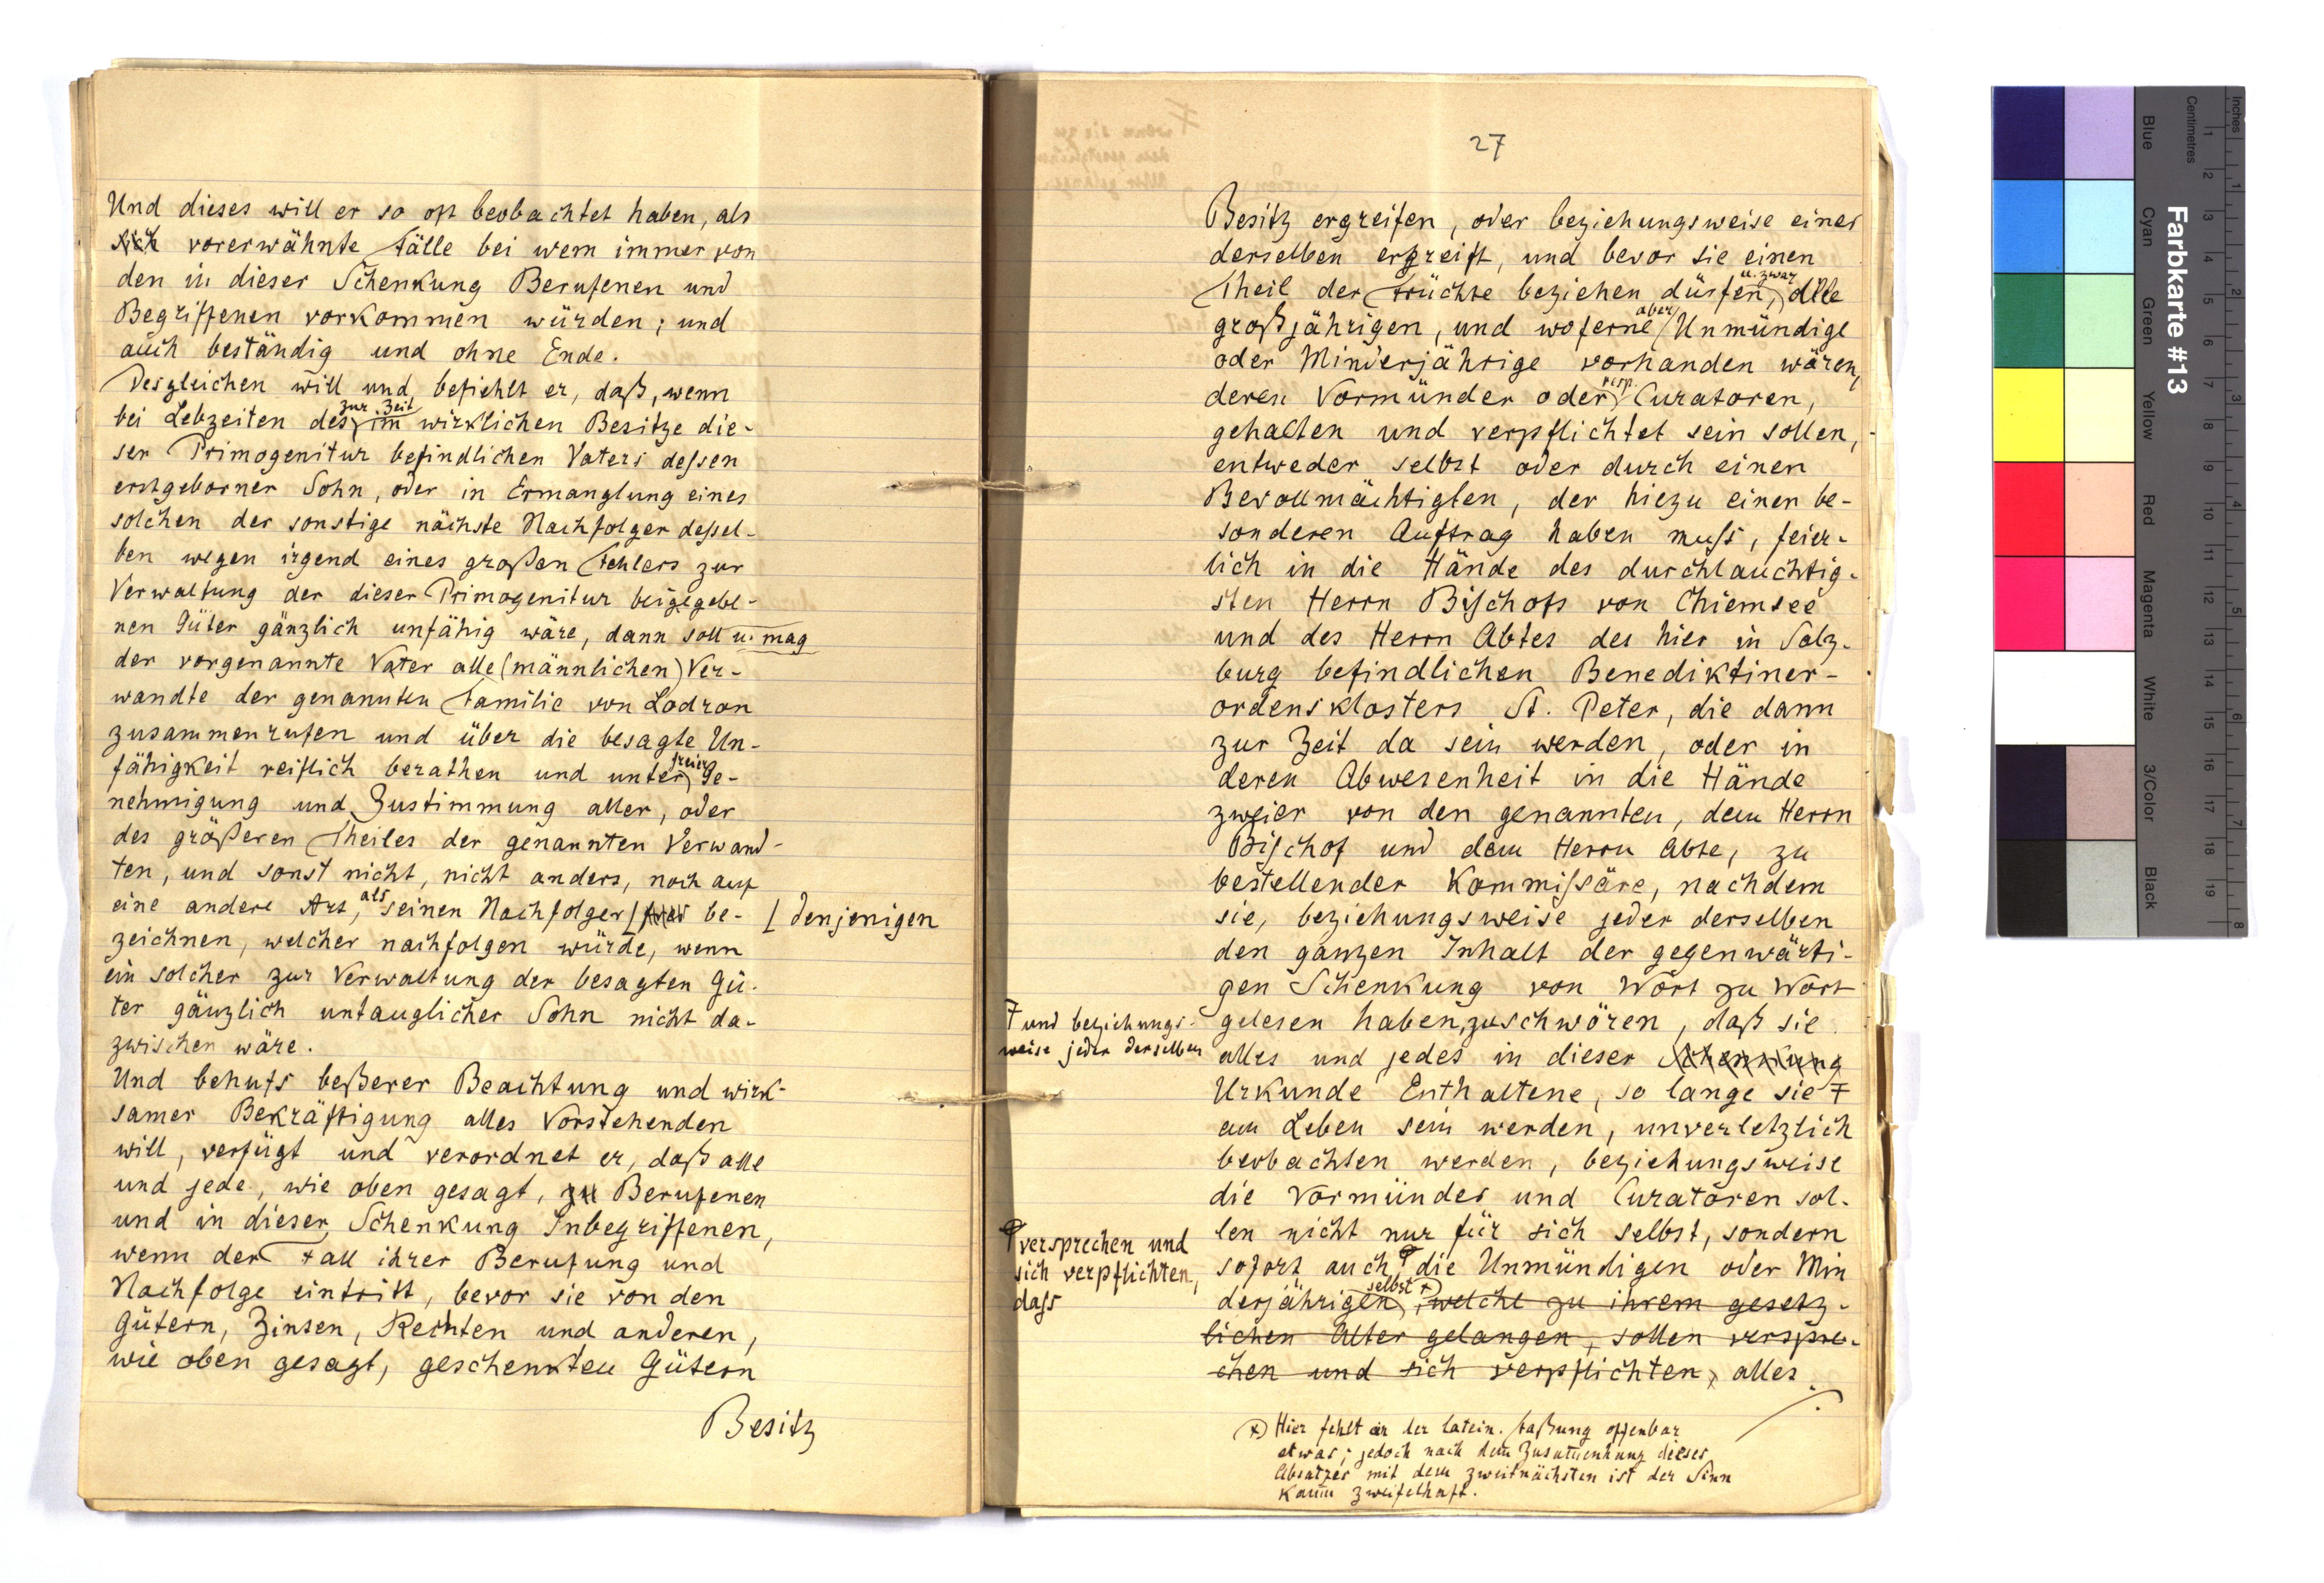 Und dieses will er so oft beobachtet haben, als
sich vorerwähnte Fälle bei wem immer von
den in dieser Schenkung Berufenen und
Begriffenen vorkommen würden; und
auch beständig und ohne Ende.
Desgleichen will und befiehlt er, daß, wenn
bei Lebzeiten des zur Zeit im wirklichen Besitze die-
ser Primogenitur befindlichen Vaters dessen
erstgeborner Sohn, oder in Ermanglung eines
solchen der sonstige nächste Nachfolger dessel-
ben wegen irgend eines großen Fehlers zur
Verwaltung der dieser Primogenitur beigegebe-
nen Güter gänzlich unfähig wäre, dann soll u. mag
der vorgenannte Vater alle (männlichen) Ver-
wandte der genannten Familie von Lodron
zusammenrufen und über die besagte Un-
fähigkeit reiflich berathen und unter freier Ge-
nehmigung und Zustimmung aller, oder
des größeren Theiles der genannten Verwand-
ten, und sonst nicht, nicht anders, noch auf
eine andere Art, als seinen Nachfolger be- denjenigen
zeichnen, welcher nachfolgen würde, wenn
ein solcher zur Verwaltung der besagten Gü-
ter gänzlich untauglicher Sohn nicht da-
zwischen wäre.
Und behufs beßerer Beachtung und wirk-
samer Bekräftigung alles Vorstehenden
will, verfügt und verordnet er, daß alle
und jede, wie oben gesagt, zu Berufenen
und in dieser Schenkung Inbegriffenen,
wenn der Fall ihrer Berufung und
Nachfolge eintritt, bevor sie von den
Gütern, Zinsen, Rechten und anderen,
wie oben gesagt, geschenkten Gütern
Besitz
27
Besitz ergreifen, oder beziehungsweise einer
derselben ergreift, und bevor sie einen
Theil der Früchte beziehen dürfen, u. zwar alle
großjährigen, und woferne aber Unmündige
oder Minderjährige vorhanden wären,
deren Vormünder oder resp. Curatoren,
gehalten und verpflichtet sein sollen,
entweder selbst oder durch einen
Bevollmächtigten, der hiezu einen be-
sonderen Auftrag haben muß, feier-
lich in die Hände des durchlauchtig-
sten Herrn Bischofs von Chiemsee
und des Herrn Abtes des hier in Salz-
burg befindlichen Benediktiner-
ordensklosters St. Peter, die dann
zur Zeit da sein werden, oder in
deren Abwesenheit in die Hände
zweier von den genannten, dem Herrn
Bischof und dem Herrn Abte, zu
bestellender Kommissäre, nachdem
sie, beziehungsweise jeder derselben
den ganzen Inhalt der gegenwärti-
gen Schenkung von Wort zu Wort
gelesen haben, zu schwören, daß sie
alles und jedes in dieser Schenkung
Urkunde Enthaltene, so lange sie Ŧ
am Leben sein werden, unverletzlich
beobachten werden, beziehungsweise
die Vormünder und Curatoren sol-
len nicht nur für sich selbst, sondern
sofort auch die Unmündigen oder Min
derjährigen selbst +), welche zu ihrem gesetz-
lichen Alter gelangen, sollen verspre-
chen und sich verpflichten, alles
Ŧ und beziehungs-
weise jeder derselben
versprechen und
sich verpflichten,
dass
+) Hier fehlt in der latein. Faßung offenbar
etwas; jedoch nach dem Zusammenhang dieses
Absatzes mit dem zweitnächsten ist der Sinn
kaum zweifelhaft.
Farbkarte #13
Blue
Cyan
Green
Yellow
Red
Magenta
White
3/Color
Black
Centimetres
Inches
1 2 3 4 5 6 7 8 9 10 11 12 13 14 15 16 17 18 19
1 2 3 4 5 6 7 8